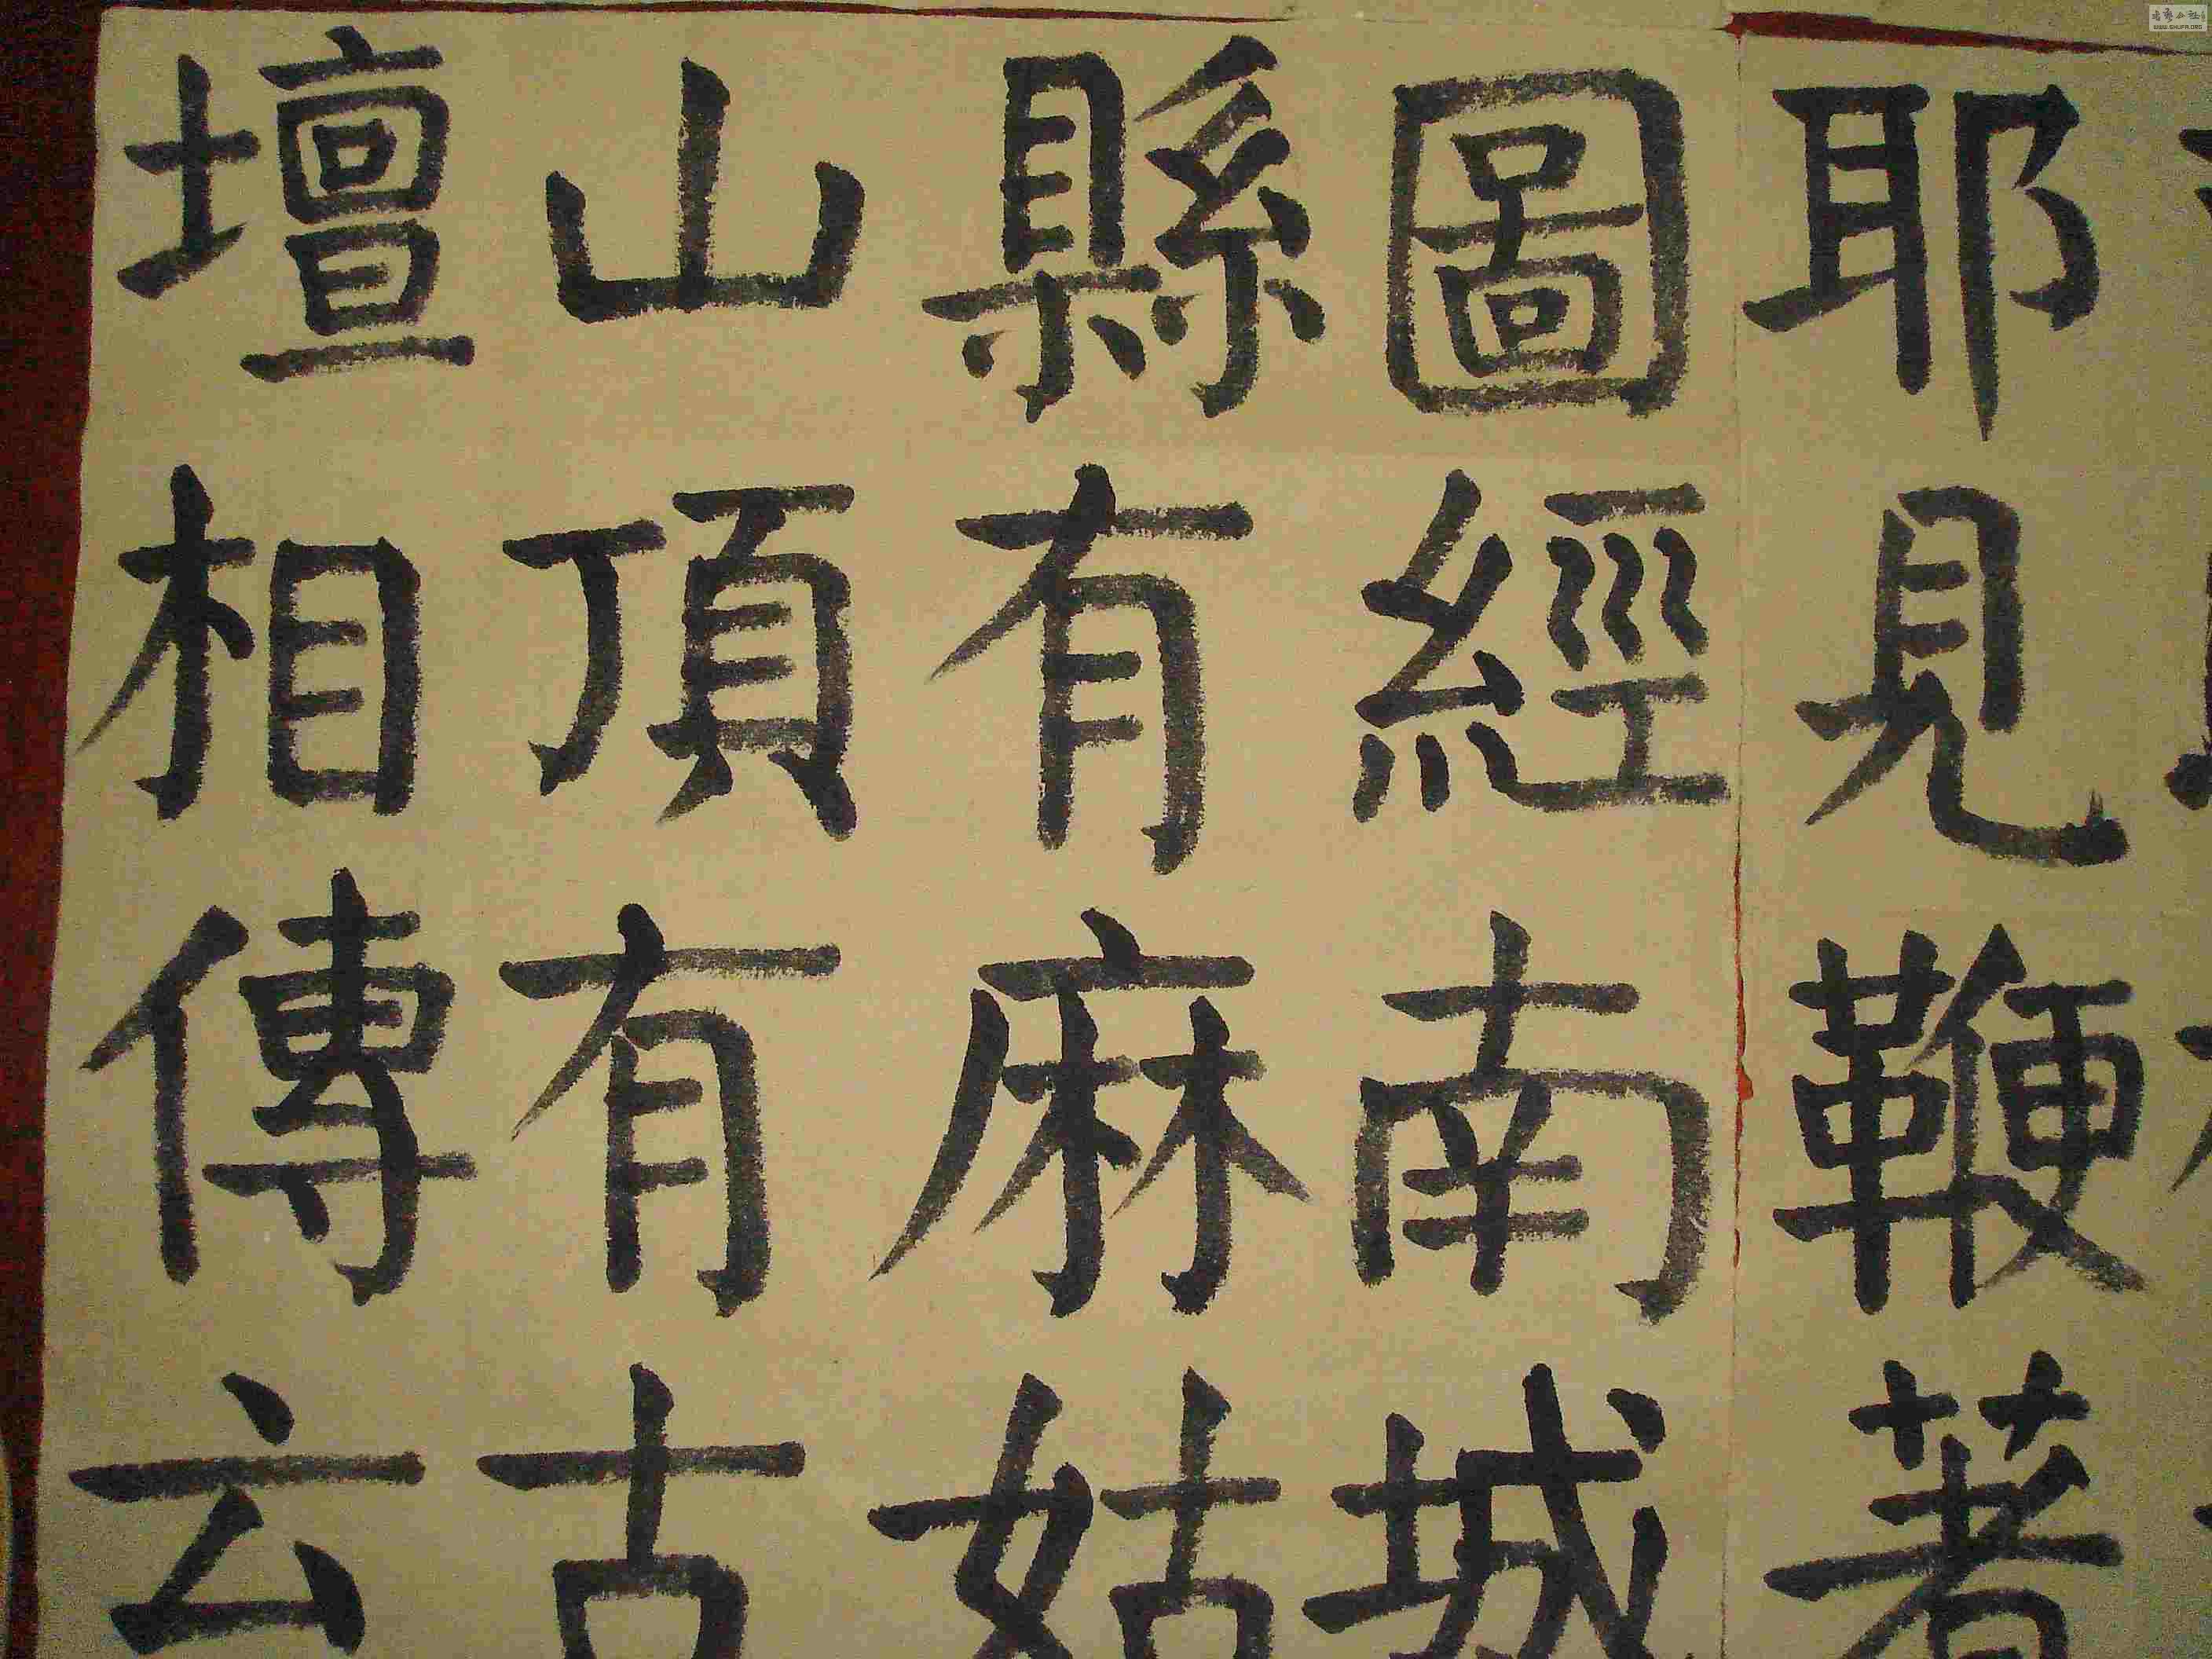 耶見鞭著
圖經南城
縣有麻姑
山頂有古
壇相傳云